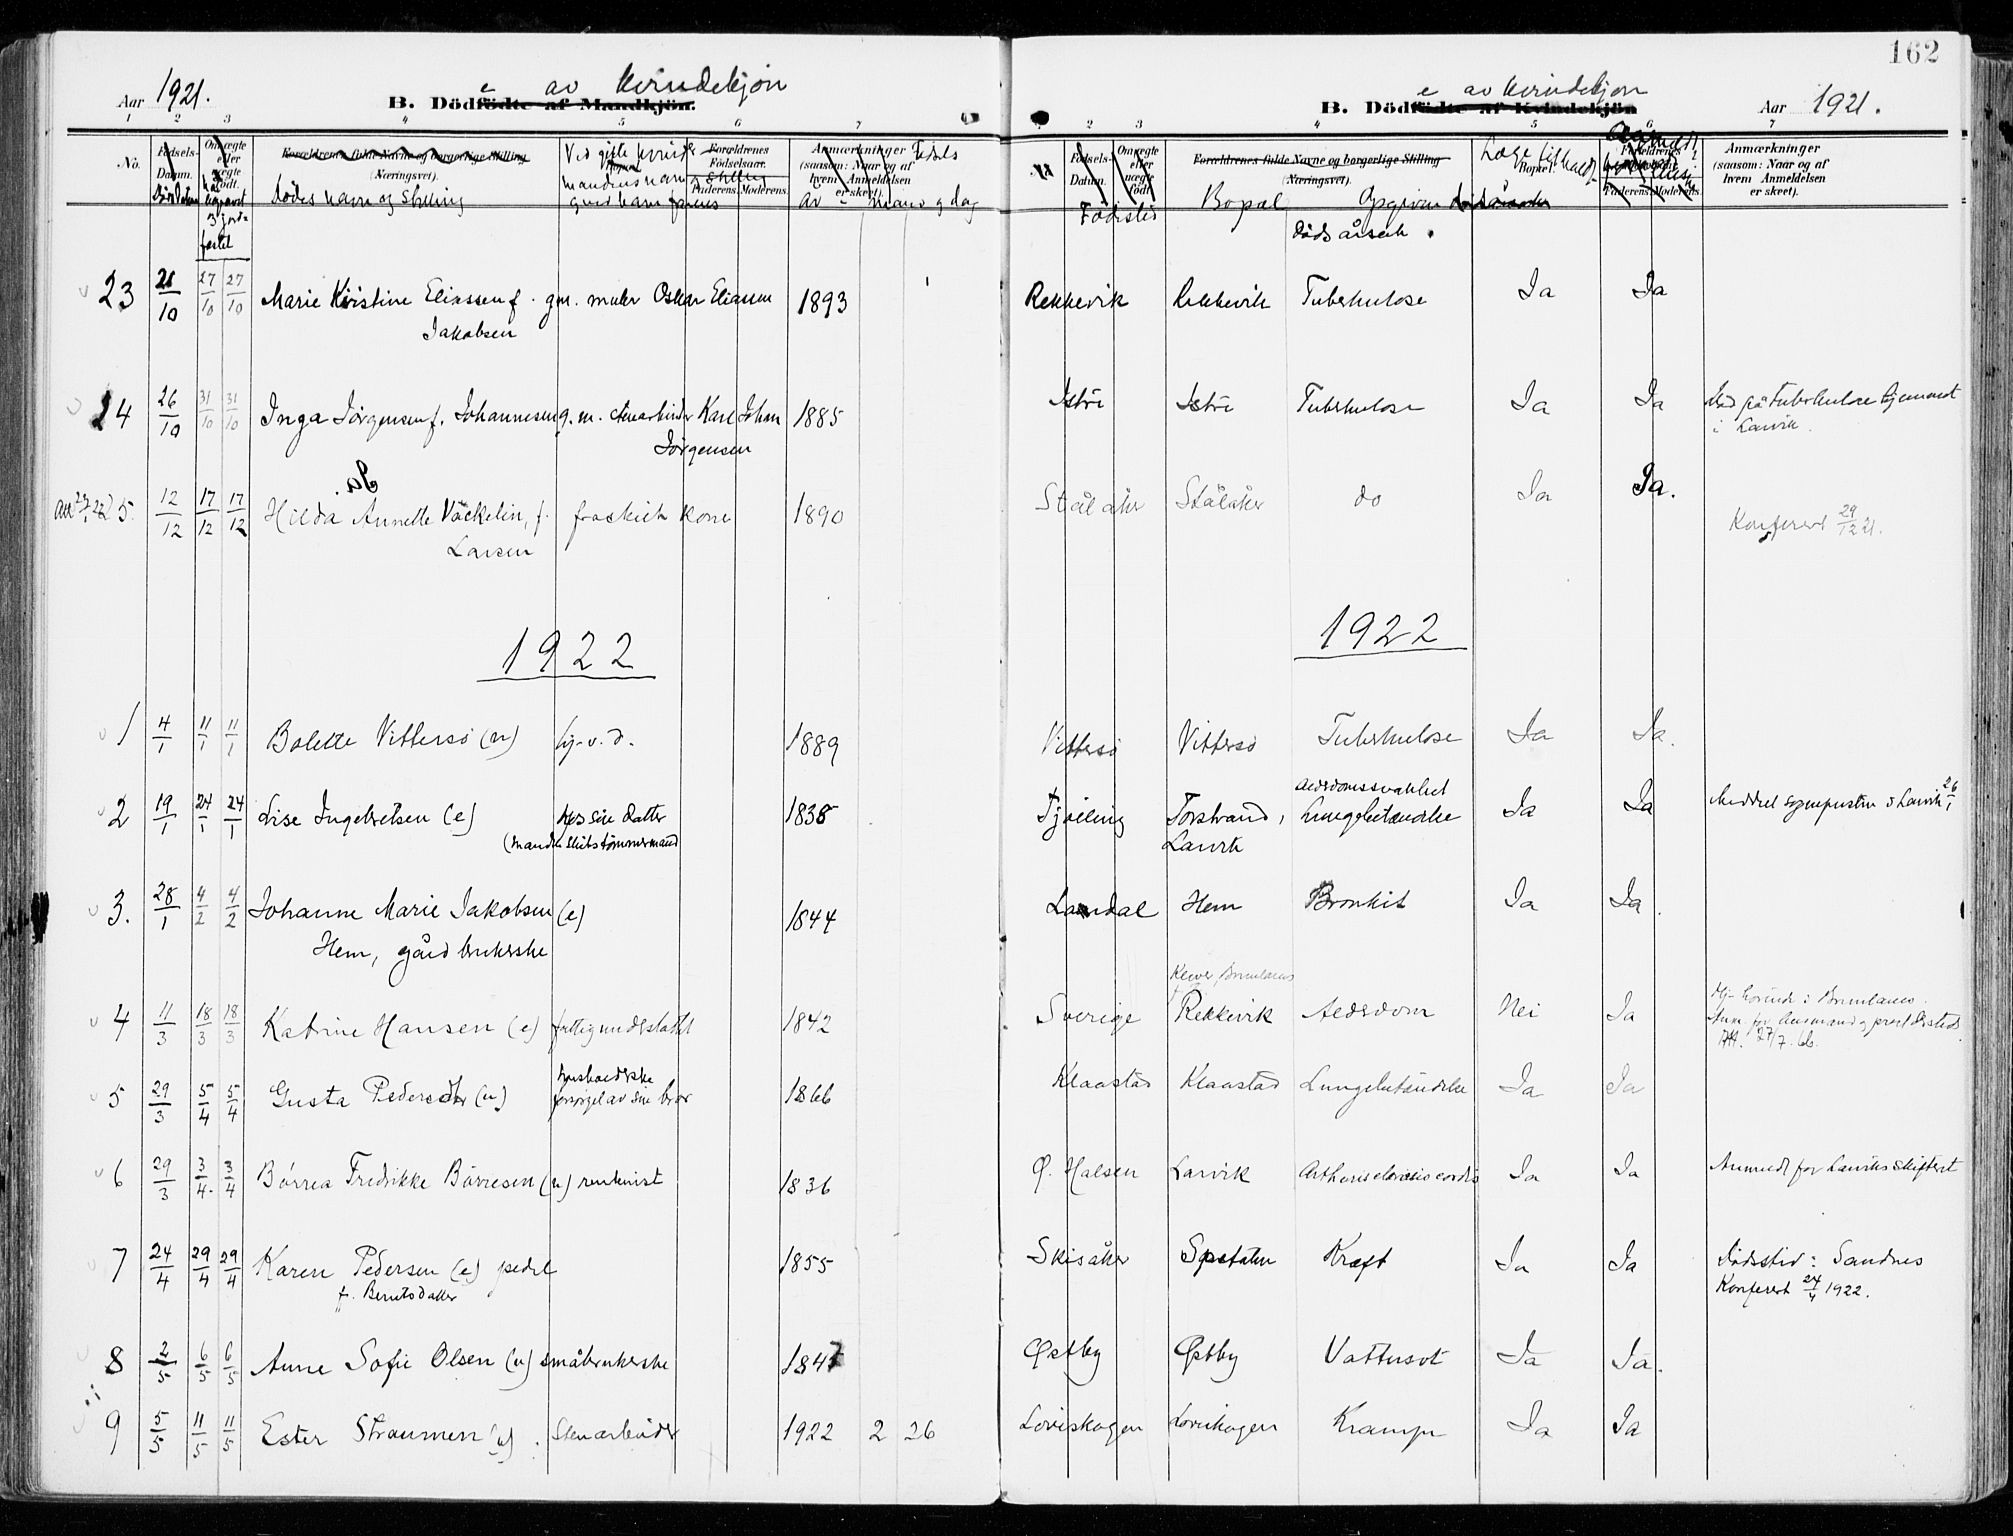 162
Aar 1921.
B. Dödfödte af Mandkjön.
e av kvindekjøn
B. Dödfödte af Kvindekjön
e av kvindekjøn
Aar 1921.
1 2 3 4 5 6 7
No. Födsels-Datum. Om ægte eller uægte födt. Forældrenes fulde Navne og borgerlige Stilling (Næringsvei). Forældrenes Födselsaar. Faderens. Moderens. Anmærkninger (saasom: Naar og af hvem Anmeldelsen er skeet).
dødes navn og stilling
Födsels-Datum. Om ægte eller uægte födt. Forældrenes fulde Navne og borgerlige Stilling (Næringsvei). Bopæl. Forældrenes Faderens. Moderens. Anmærkninger (saasom: Naar og af hvem Anmeldelsen er skeet).
Fødested Bopæl Opgiven
dødsårsak.
23 21/10 27/10 27/10 Marie Kristine Eliassen f. gm. maler Oskar Eliassen 1893 Rekkevik Rekkevik Tuberkulose Ja Ja
Jakobsen
24 26/10 31/10 31/10 Inga Jørgensen f. Johannesen g.m. stenarbeider Karl Johan 1885 Istre Istre Tuberkulose Ja Ja Død på Tuberkulose hjemmet
Jørgensen i Larvik.
25. 12/12 17/12 17/12 Hilda Annette Väckelin, f. fraskilt kone 1890 Stålåker Stålåker do Ja Ja.
Larsen Konferert 29/12 21.
1922 1922
1 4/1 11/1 11/1 Bolette Vittersø (u) hj.v.d. 1889 Vittersø Vittersø Tuberkulose Ja Ja.
Alderdomssvakhet
2 19/1 24/1 24/1 Lise Ingebretsen (e) hos sin datter 1838 Tjølling Torstrand, Lungebetændelse Ja Ja Meddelt sognepresten i Larvik 26/1
(mand skibstømmermand Larvik
3. 28/1 4/2 4/2 Johanne Marie Jakobsen (e) 1844 Landal Hem Bronkit Ja Ja.
Hem, gårdbrukerske
4 11/3 18/3 18/3 Katrine Hansen (e) fattigunderstøttet 1842 Sverige Rekkevik Alderdom Nei Ja
5 29/3 5/4 5/4 Gusta Pedersdtr (u) husholderske 1866 Klaastad Klaastad Lungebetændelse Ja Ja
forsørget av sin bror
6 29/3 3/4. 3/4 Børrea Fredrikke Børresen (u) rentenist 1836 Ø. Halsen Larvik Artheriesclerosis cordis Ja Ja Anmeldt for Larviks skifteret
7 24/4 29/4 29/4 Karen Pedersen (e) pedel 1855 Skisåker Kræft Ja Ja Dødssted: Sandnes
f. Berntsdatter Konferert 24/4 1922.
8 2/5 6/5 6/5 Anne Sofie Olsen (u) småbrukerske 1847 Østby Østby Vattersot Ja Ja.
9 5/5 11/5 11/5 Ester Straumen (u). Stenarbeider 1922 2 26 Loviskogen Loviskogen Krampe Ja Ja